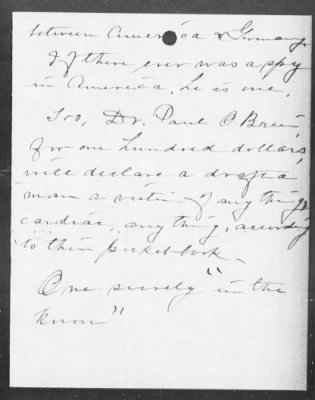 between America & Germany
If there ever was a spy
in America, he is one.
Too, Dr. Paul O'Brien,
for one hundred dollars,
will declare a draft a
man a victim of anything
cardiac, anything, according
to their pocket-book -
One surely "in the
know"